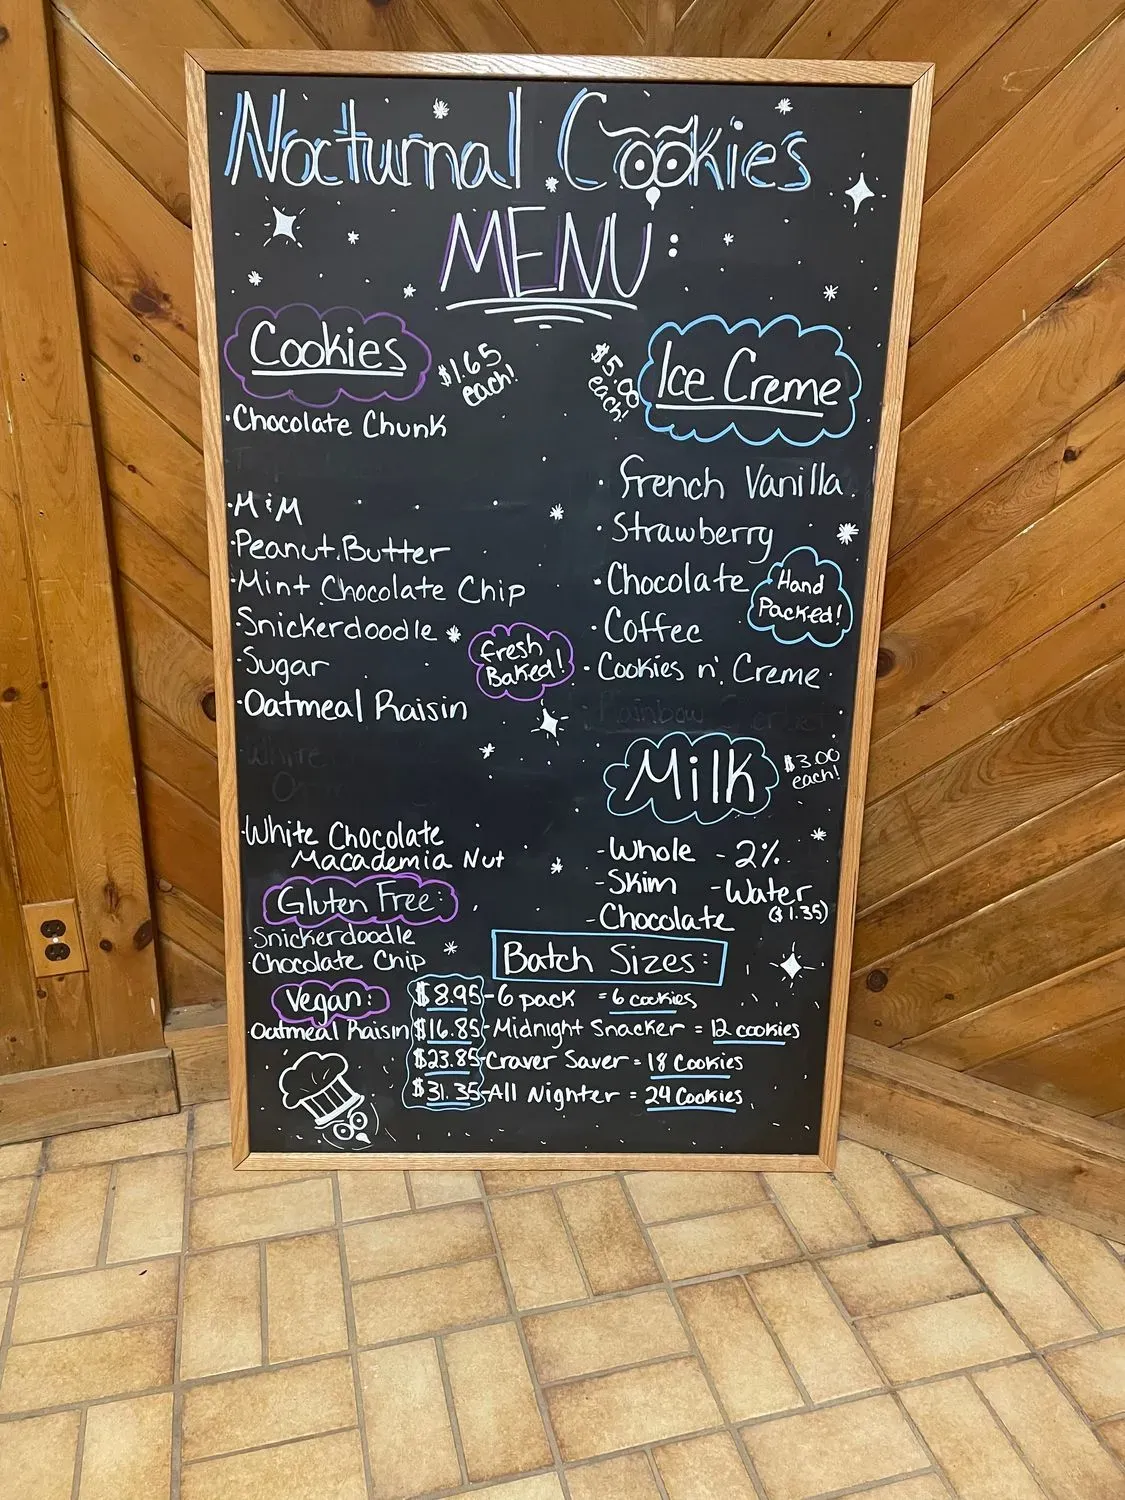 Nocturnal Cookies
MENU:
Cookies
$1.65
each!
·Chocolate Chunk
·M&M
·Peanut Butter
·Mint Chocolate Chip
·Snickerdoodle
·Sugar
·Oatmeal Raisin
Fresh
Baked!
White
·White Chocolate
Macademia Nut
Gluten Free:
Snickerdoodle
Chocolate Chip
Vegan:
Oatmeal Raisin
$5.00
each!
Ice Creme
· French Vanilla
· Strawberry
· Chocolate
· Coffee
· Cookies n' Creme
Rainbow
Hand
Packed!
Milk
$3.00
each!
-Whole -2%
-Skim -Water
($1.35)
-Chocolate
Batch Sizes:
$8.95-6 pack = 6 cookies
$16.85-Midnight Snacker = 12 cookies
$23.85-Craver Saver = 18 Cookies
$31.35-All Nighter = 24 Cookies